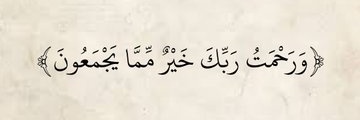 ﴿وَرَحْمَتُ رَبِّكَ خَيْرٌ مِّمَّا يَجْمَعُونَ﴾